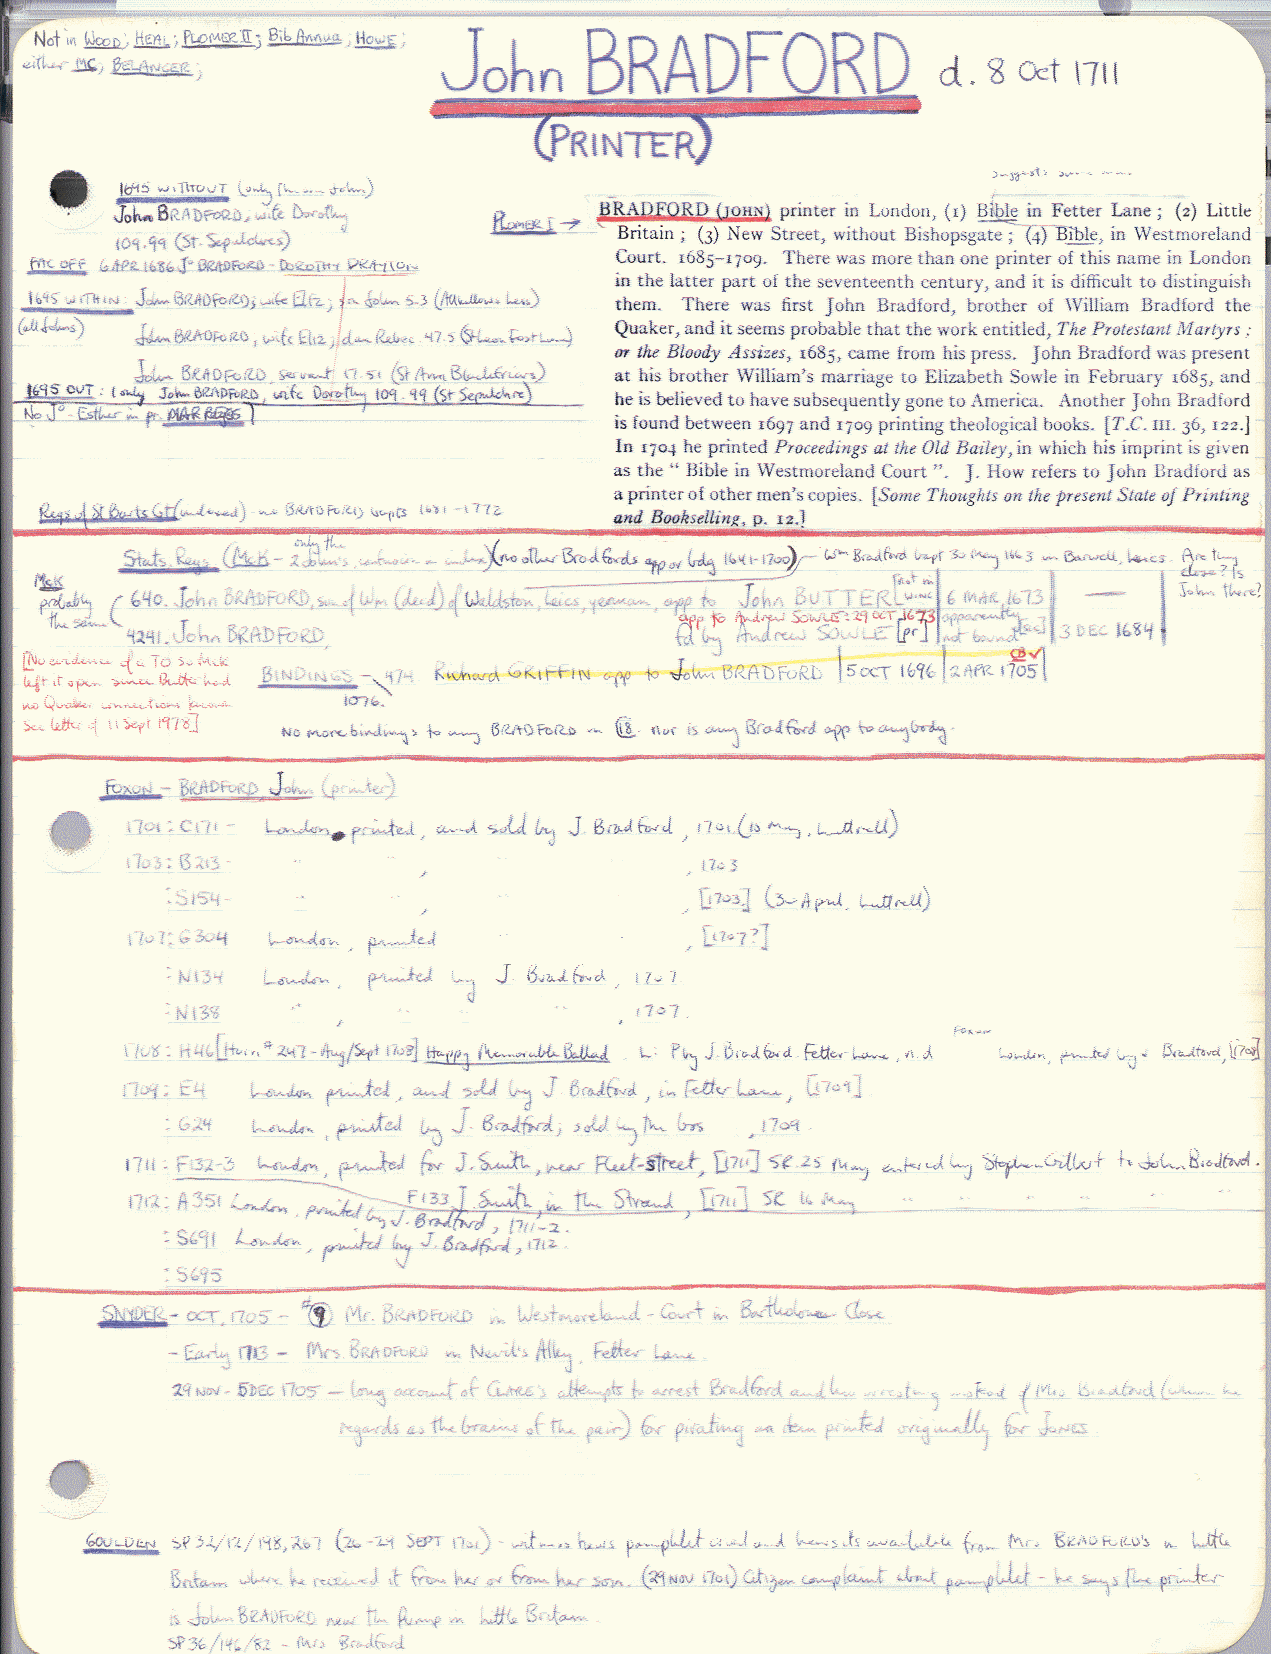 Not in WOOD; HEAL; PLOMER II; Bib Annua; HOWE;
either MC; BELANGER;
John BRADFORD d. 8 Oct 1711
(PRINTER)
1695 WITHOUT (only John)
John BRADFORD, wife Dorothy
109.99 (St. Sepulchres)
FAC OFF 6 APR 1686 Jo BRADFORD - DOROTHY DRAYTON
1695 WITHIN: John BRADFORD; wife Eliz; son John 5.3 (Allhallows Less)
(all Johns) John BRADFORD, wife Eliz; dau Rebec. 47.5 (St Leon Fost Lane)
John BRADFORD, servant 17.51 (St Ann Blackfriars)
1695 OUT: (only John BRADFORD, wife Dorothy 109.99 (St Sepulchre)
No Jo - Esther in pr. MAR REGS
Regs of St Barts Gt (indexed) - no BRADFORD bapts 1681-1772
PLOMER I →
BRADFORD (JOHN) printer in London, (1) Bible in Fetter Lane; (2) Little
Britain; (3) New Street, without Bishopsgate; (4) Bible, in Westmoreland
Court. 1685-1709. There was more than one printer of this name in London
in the latter part of the seventeenth century, and it is difficult to distinguish
them. There was first John Bradford, brother of William Bradford the
Quaker, and it seems probable that the work entitled, The Protestant Martyrs;
or the Bloody Assizes, 1685, came from his press. John Bradford was present
at his brother William's marriage to Elizabeth Sowle in February 1685, and
he is believed to have subsequently gone to America. Another John Bradford
is found between 1697 and 1709 printing theological books. [T.C. III. 36, 122.]
In 1704 he printed Proceedings at the Old Bailey, in which his imprint is given
as the "Bible in Westmoreland Court". J. How refers to John Bradford as
a printer of other men's copies. [Some Thoughts on the present State of Printing
and Bookselling, p. 12.]
Stats. Regs (McK - only the 2 John's, in index) (no other Bradfords app or bdg 1641-1700) - Wm Bradford bapt 30 May 1663 in Barwell, Leics. Are they close? Is John there?
McK probably the same
640. John BRADFORD, son of Wm (decd) of Waldston, Leics, yeoman, app to John BUTTER [not in WING] 6 MAR 1673 —
app to Andrew SOWLE: 29 OCT 1673 apparently not bound
4241. John BRADFORD, fd by Andrew SOWLE [pr] 3 DEC 1684
[No evidence of a TO so McK
left it open since Butter had
no Quaker connections known
See letter of 11 Sept 1978]
BINDINGS - 474 Richard GRIFFIN app to John BRADFORD 5 OCT 1696 2 APR 1705 CB✓
1076.
No more bindings to any BRADFORD in 18 nor is any Bradford app to anybody.
FOXON - BRADFORD, John (printer)
1701: C171 - London, printed, and sold by J. Bradford, 1701. (10 May, Luttrell)
1703: B213 - " , " , 1703
: S154 - " , " , [1703.] (30 April, Luttrell)
1707: G304 London, printed " , [1707?]
: N134 London, printed by J. Bradford, 1707
: N138 " , " " " , 1707.
1708: H46 [Horn # 247 - Aug/Sept 1708] Happy Memorable Ballad. L: P by J. Bradford. Fetter Lane, n.d Foxon London, printed by J Bradford, [1708]
1709: E4 London printed, and sold by J. Bradford, in Fetter Lane, [1709]
: G24 London, printed by J. Bradford; sold by the bos , 1709.
1711: F132-3 London, printed for J. Smith, near Fleet-street, [1711] SR 25 May entered by Stephen Gilbert to John Bradford.
F133 J Smith, in the Strand, [1711] SR 16 May " " " " "
1712: A351 London, printed by J. Bradford, 1711-2.
: S691 London, printed by J. Bradford, 1712.
: S695
SNYDER - OCT. 1705 - #9 Mr. BRADFORD in Westmoreland-Court in Bartholomew Close
- Early 1713 - Mrs. BRADFORD in Nevil's Alley, Fetter Lane.
29 NOV - 5 DEC 1705 - long account of CLARE's attempts to arrest Bradford and his arresting instead of Mrs Bradford (whom he
regards as the brains of the pair) for pirating an item printed originally for JONES
GOULDEN SP 32/12/198, 267 (26-29 SEPT 1701) - witness hears pamphlet cried and hears its available from Mrs BRADFORD'S in Little
Britain where he received it from her or from her son. (29 NOV 1701) Citizen complaint about pamphlet - he says the printer
is John BRADFORD near the Pump in Little Britain.
SP 36/146/82 - Mrs Bradford